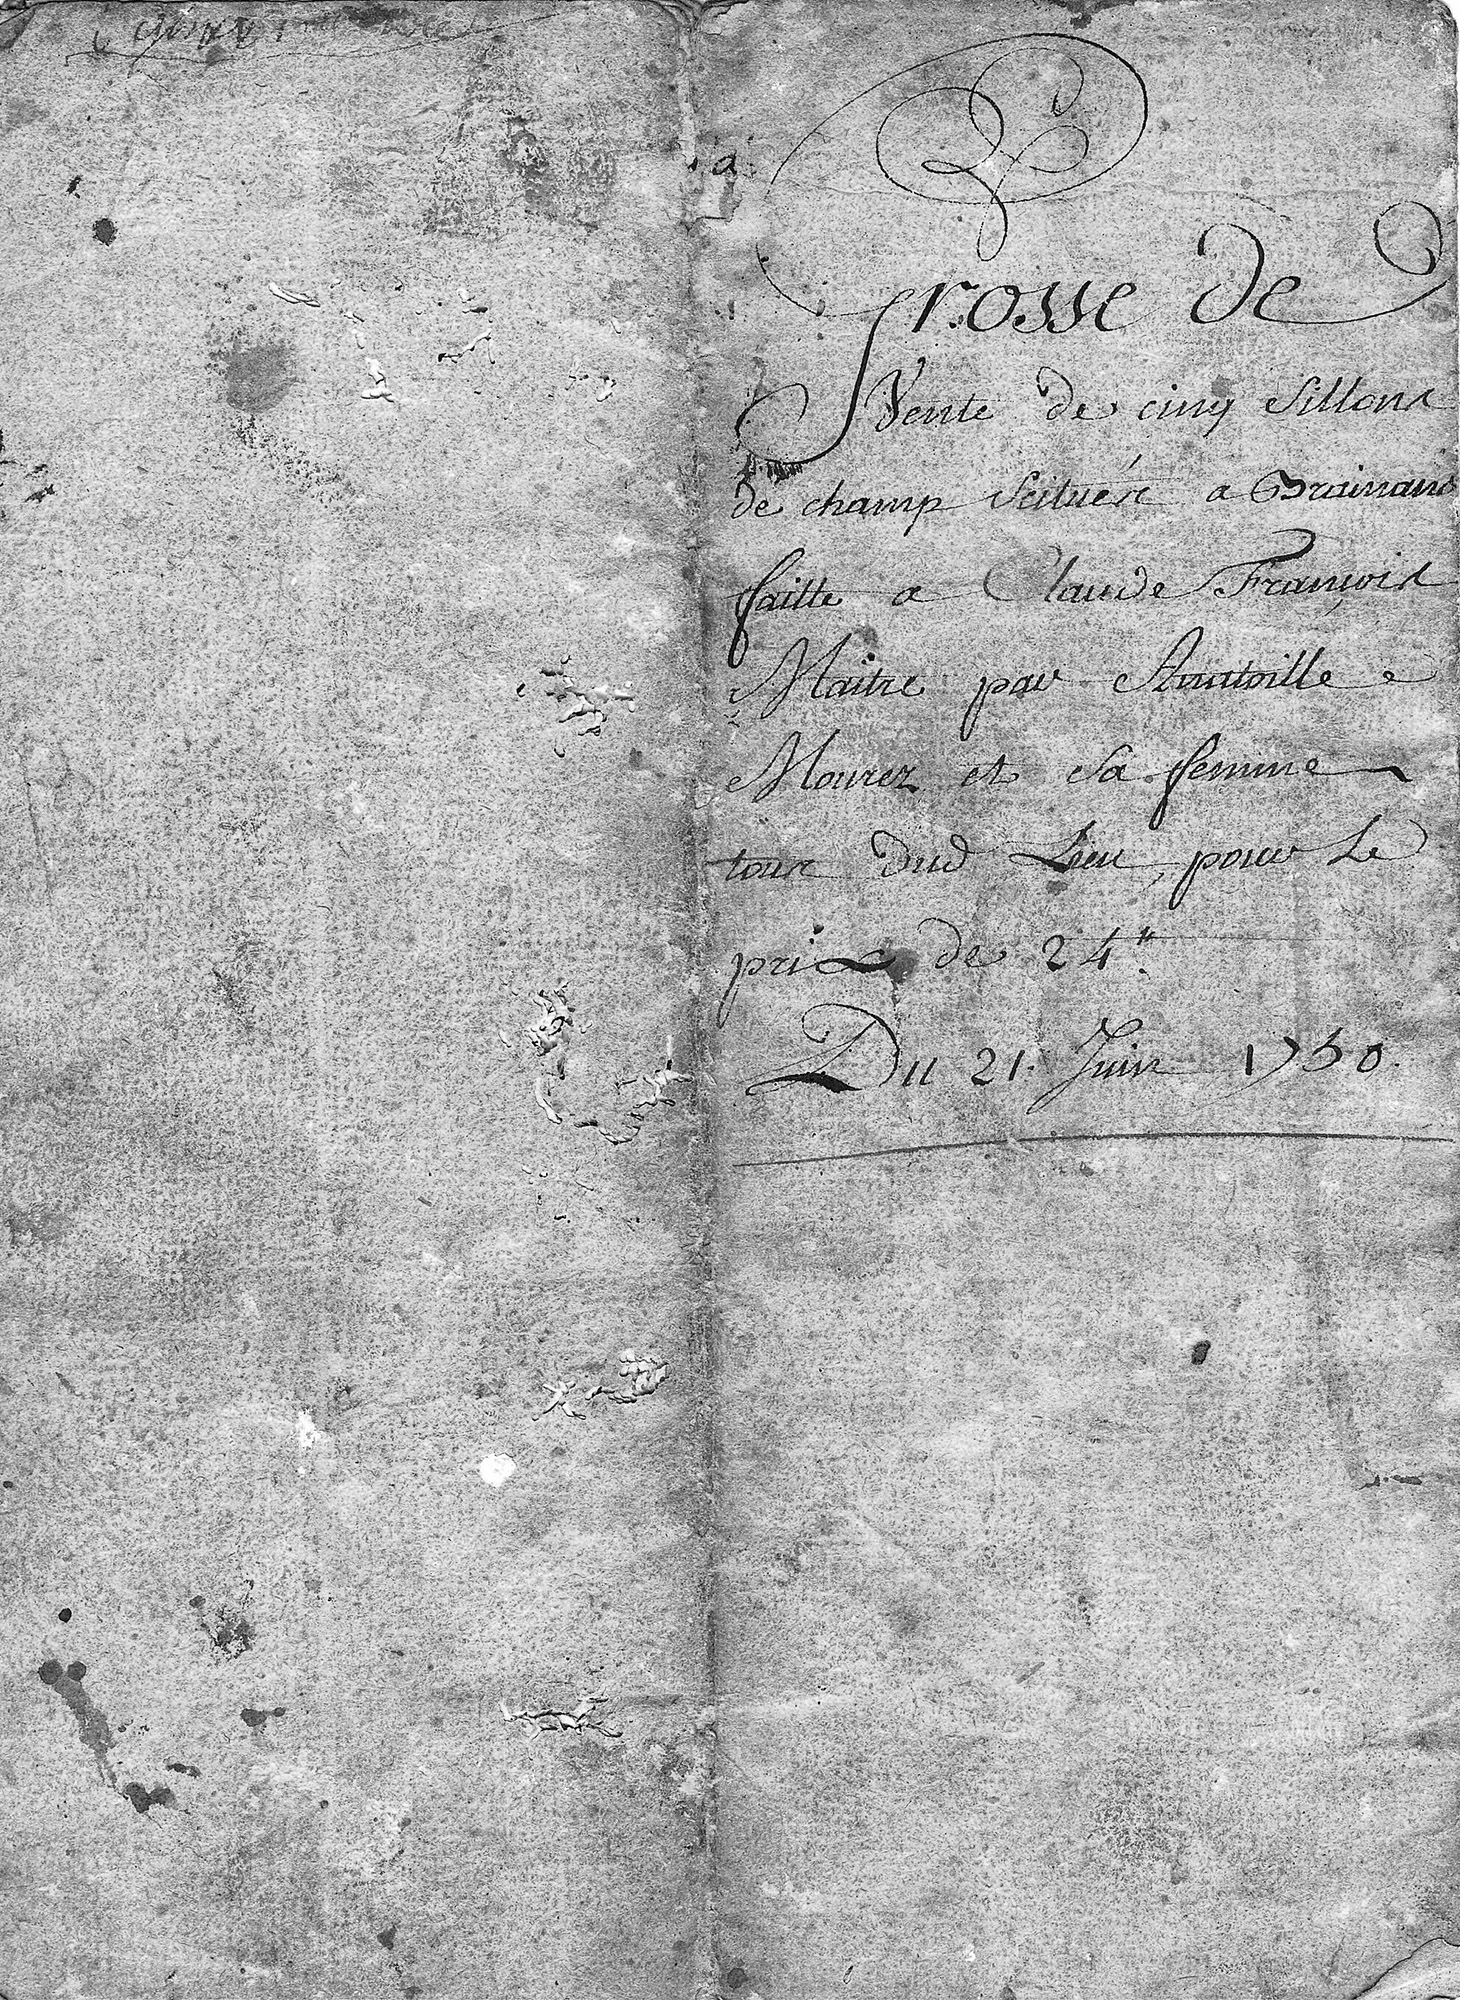 Grosse de
Vente de cinq sillons
de champ scitués a Brainans
faitte a Claude François
Maitre par Anatoille
Mourez et sa femme
tous dud Lieu, pour Le
prix de 24"
Du 21. Juin 1750.